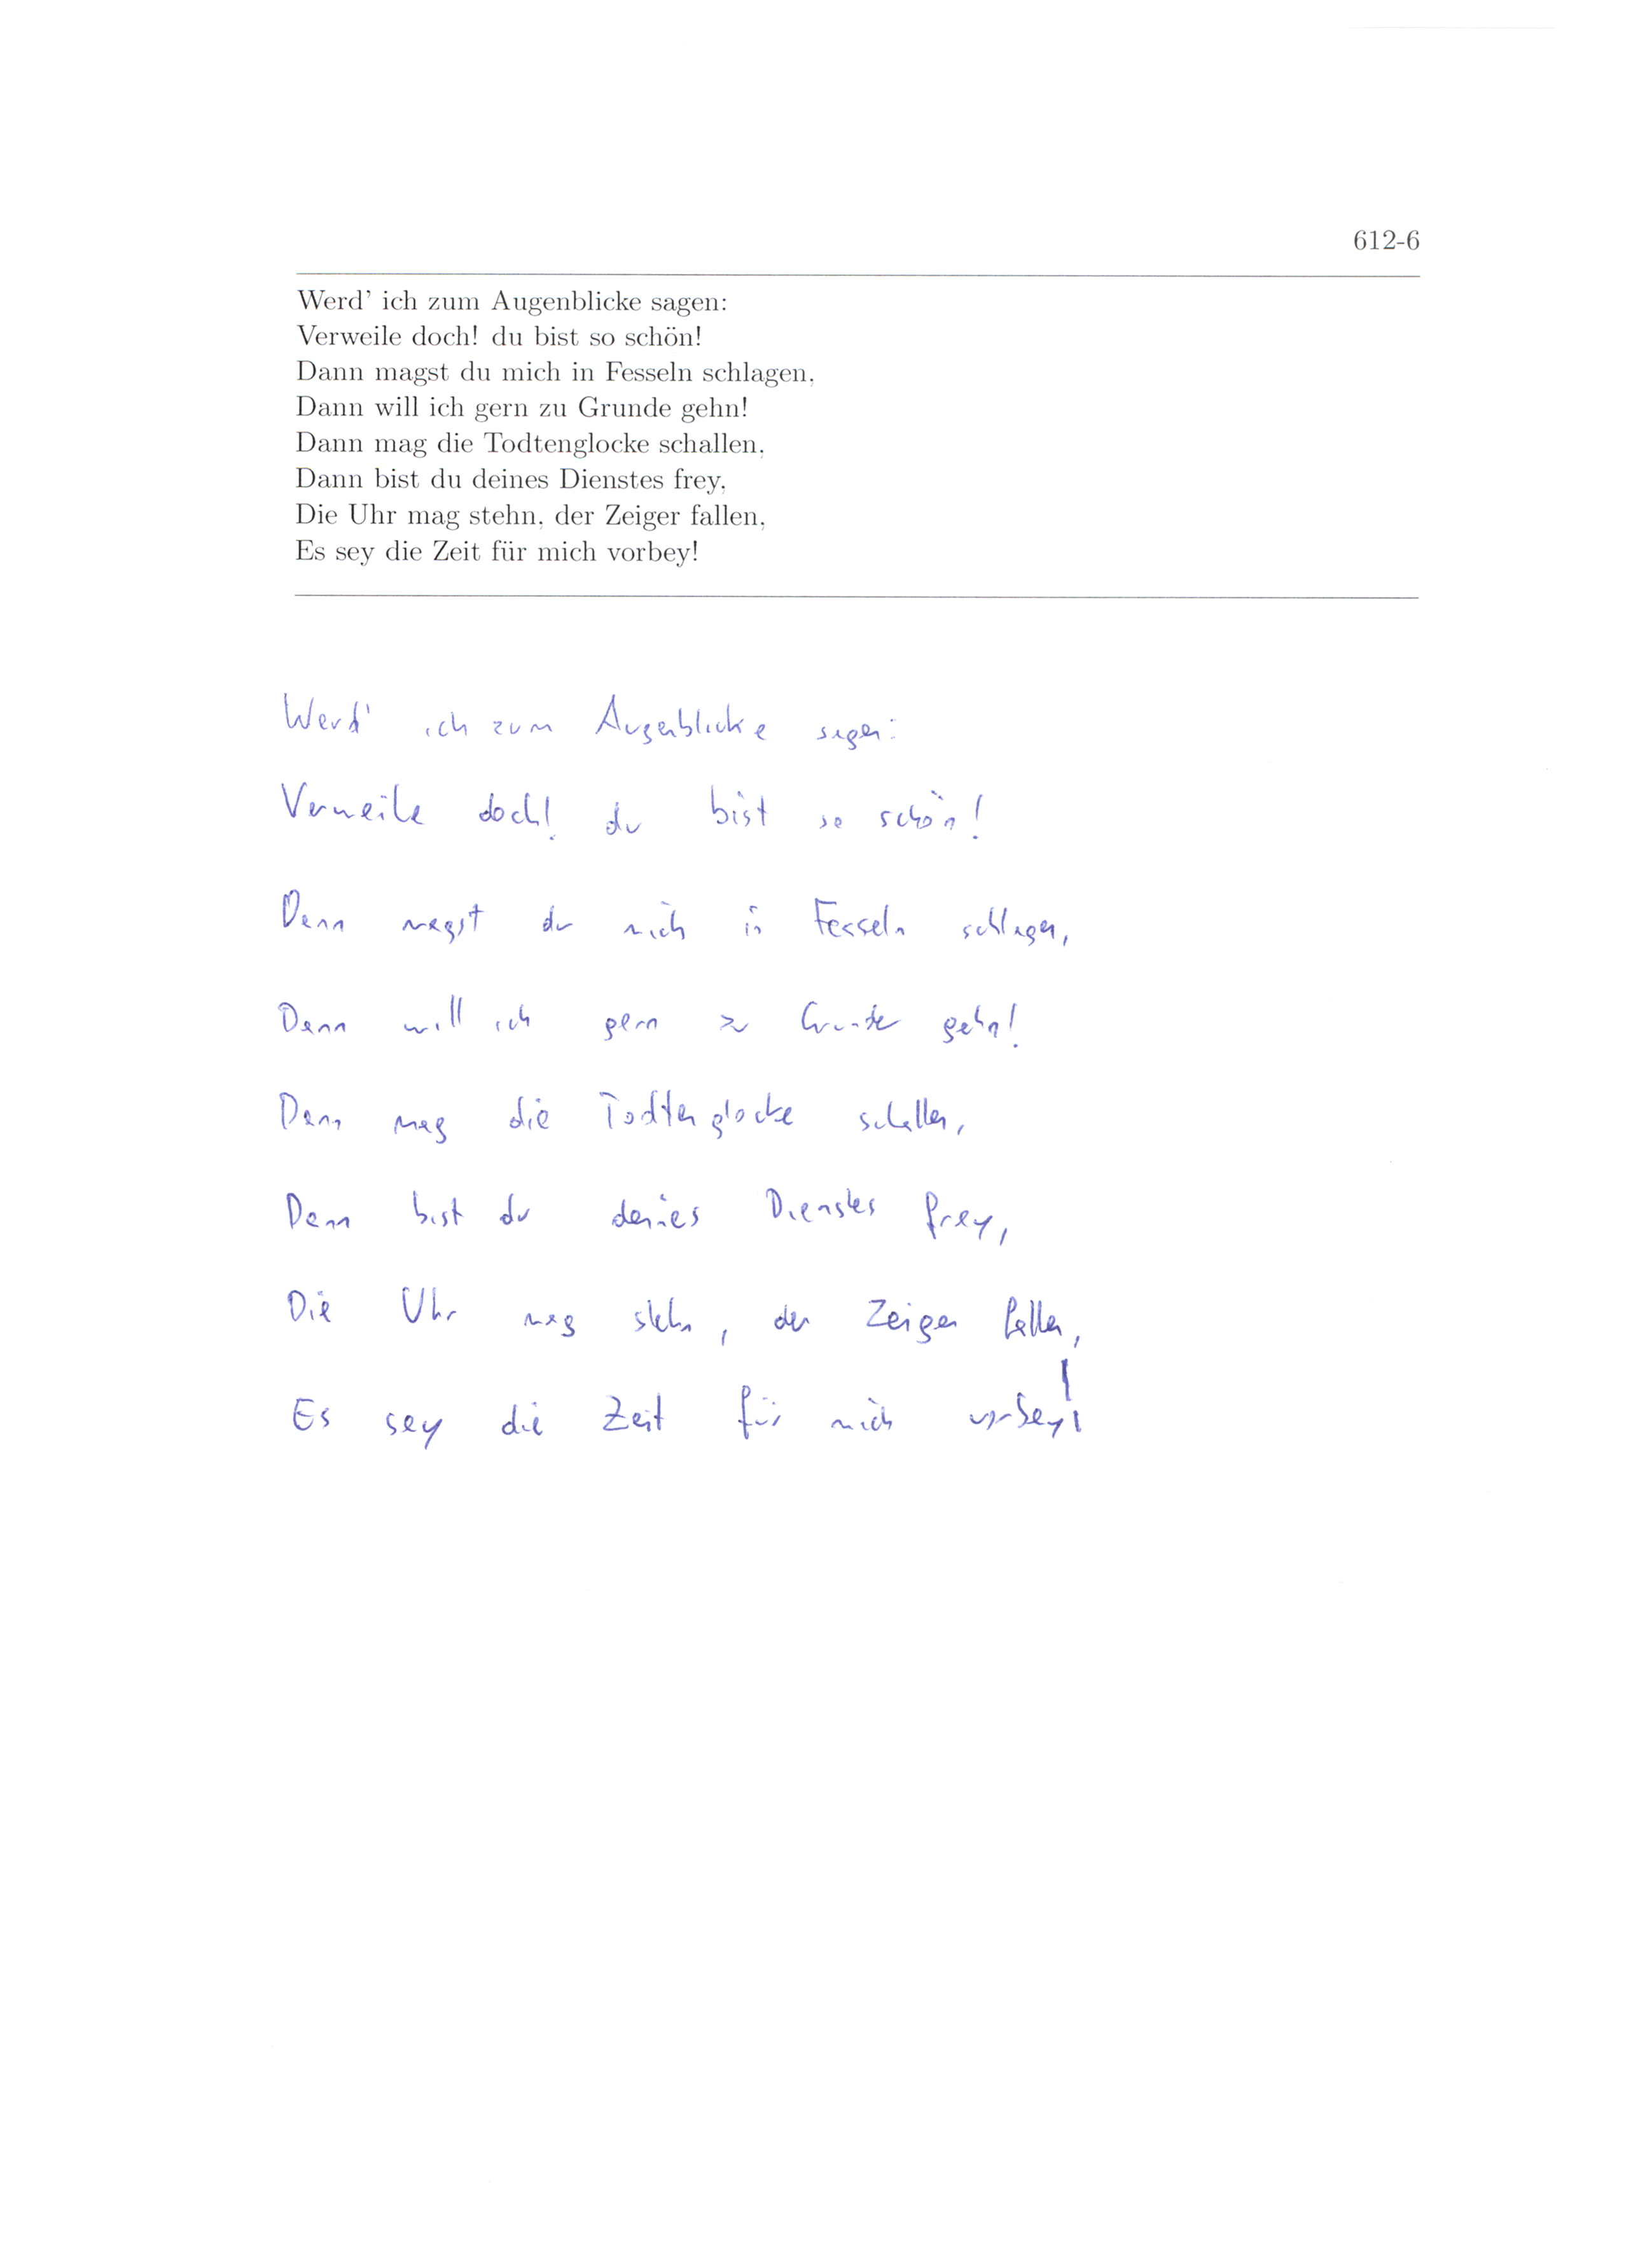 612-6
Werd' ich zum Augenblicke sagen:
Verweile doch! du bist so schön!
Dann magst du mich in Fesseln schlagen,
Dann will ich gern zu Grunde gehn!
Dann mag die Todtenglocke schallen,
Dann bist du deines Dienstes frey,
Die Uhr mag stehn, der Zeiger fallen,
Es sey die Zeit für mich vorbey!
Werd' ich zum Augenblicke sagen:
Verweile doch! du bist so schön!
Dann magst du mich in Fesseln schlagen,
Dann will ich gern zu Grunde gehn!
Dann mag die Todtenglocke schallen,
Dann bist du deines Dienstes frey,
Die Uhr mag stehn, der Zeiger fallen,
Es sey die Zeit für mich vorbey!